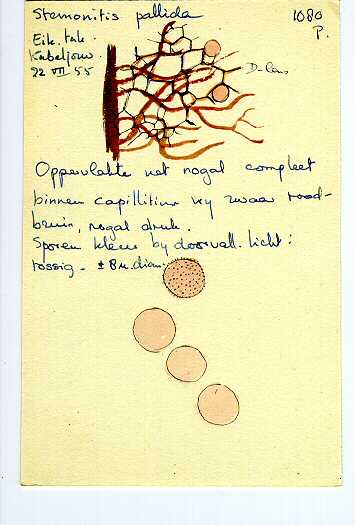 Stemonitis pallida 1080
Eik. tak. P.
Kabeljouw.
22 VII 55
D-lens
Oppervlakte net nogal compleet
binnen capillitium vrij zwaar rood-
bruin, nogal druk.
Sporen kleur bij doorvall. licht:
rossig. ± 8 µ. diam.